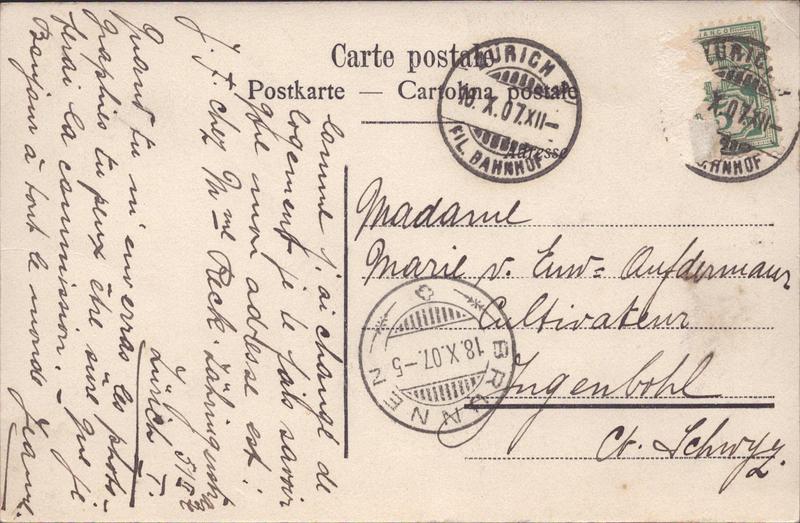 Carte postale
Postkarte — Cartolina postale
Adresse
ZÜRICH
18.X.07.XII—
FIL. BAHNHOF
ZÜRICH
X.07.XII—
BAHNHOF
FRANCO
Madame
Marie v. Euw= Aufdermaur
Cultivateur
Ingenbohl
Ct. Schwyz.
BRUNNEN
18.X.07.–5
Comme j'ai changé de
logement je te fais savoir
que mon adresse est :
J. F. chez Mme Reck. Zähringerstr
Zürich I.
Quand tu m'enverras les photo-
graphies tu peux être sûre que je
ferai la commission. –
Bonjour à tout le monde Jeanne.